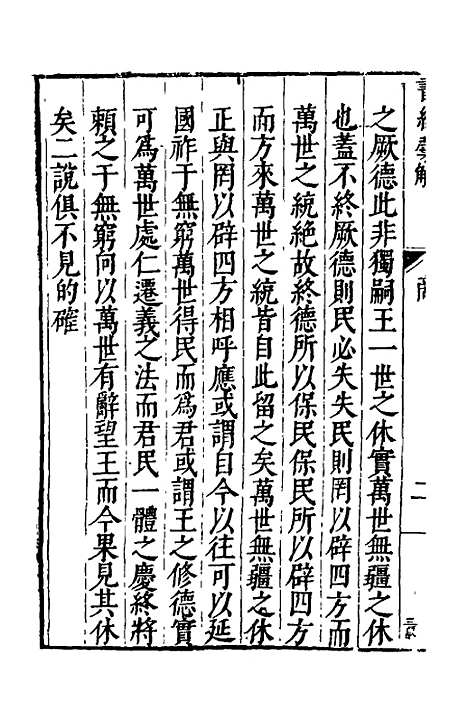 之厥德此非獨嗣王一世之休實萬世無疆之休
也蓋不終厥德則民必失失民則罔以辟四方而
萬世之統絕故終德所以保民保民所以辟四方
而方來萬世之統皆自此留之矣萬世無疆之休
正與罔以辟四方相呼應或謂自今以往可以延
國祚于無窮萬世得民而爲君或謂王之修德實
可爲萬世處仁遷義之法而君民一體之慶終將
賴之于無窮何以萬世有辭望王而今果見其休
矣二說俱不見的確